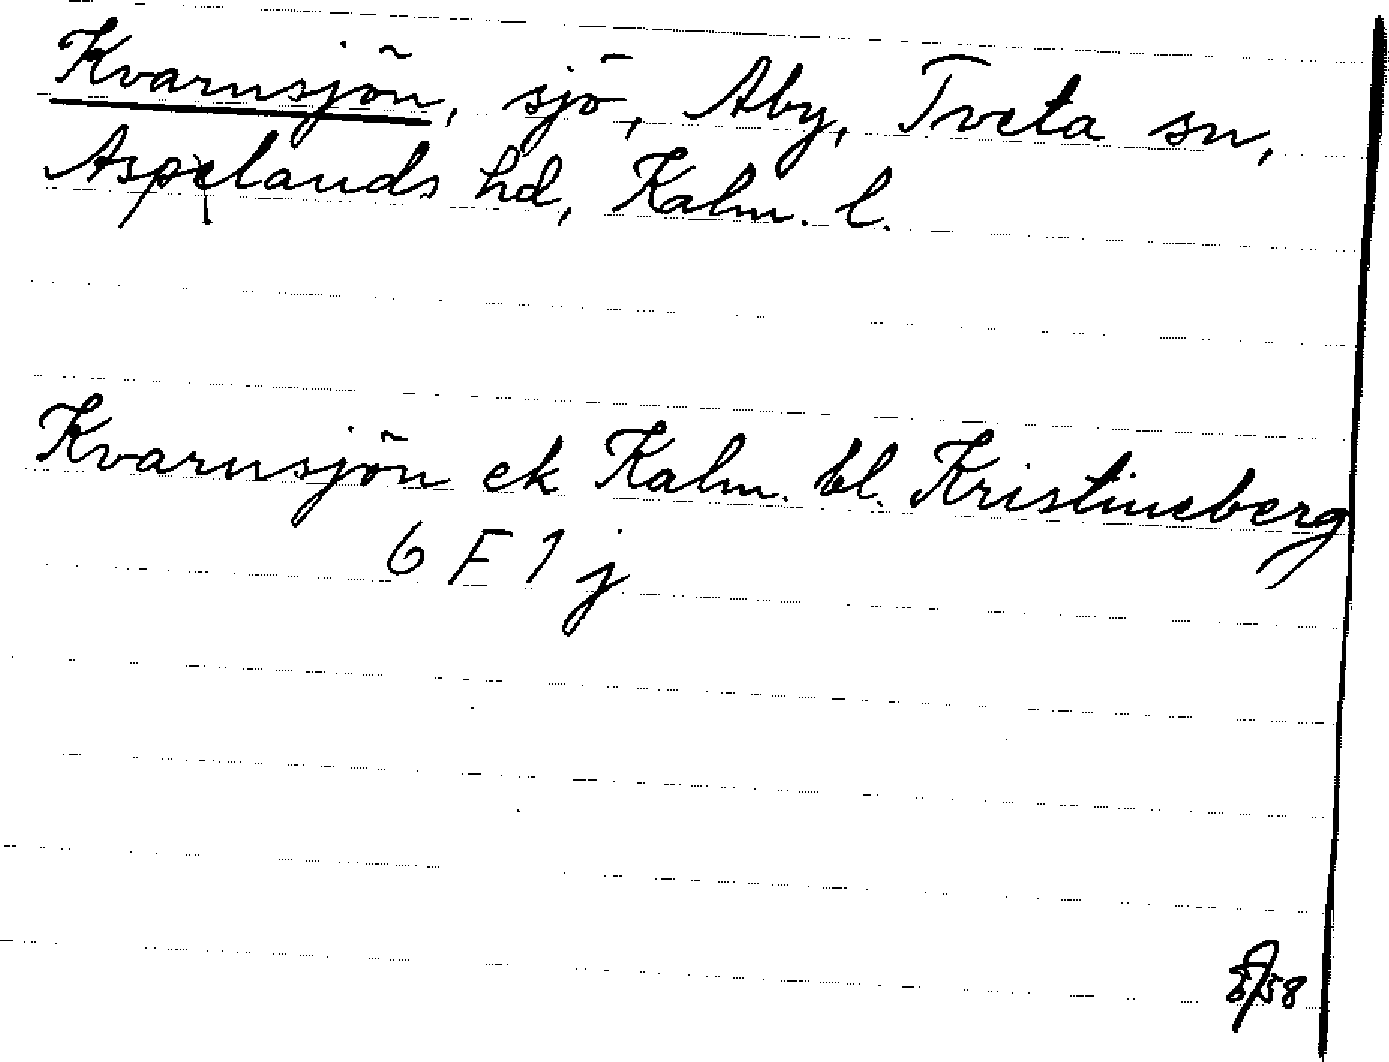 Kvarnsjön, sjö, Åby, Tveta sn,
Aspelands hd, Kalm. l.
Kvarnsjön ek Kalm. bl. Kristineberg
6 F 1 j